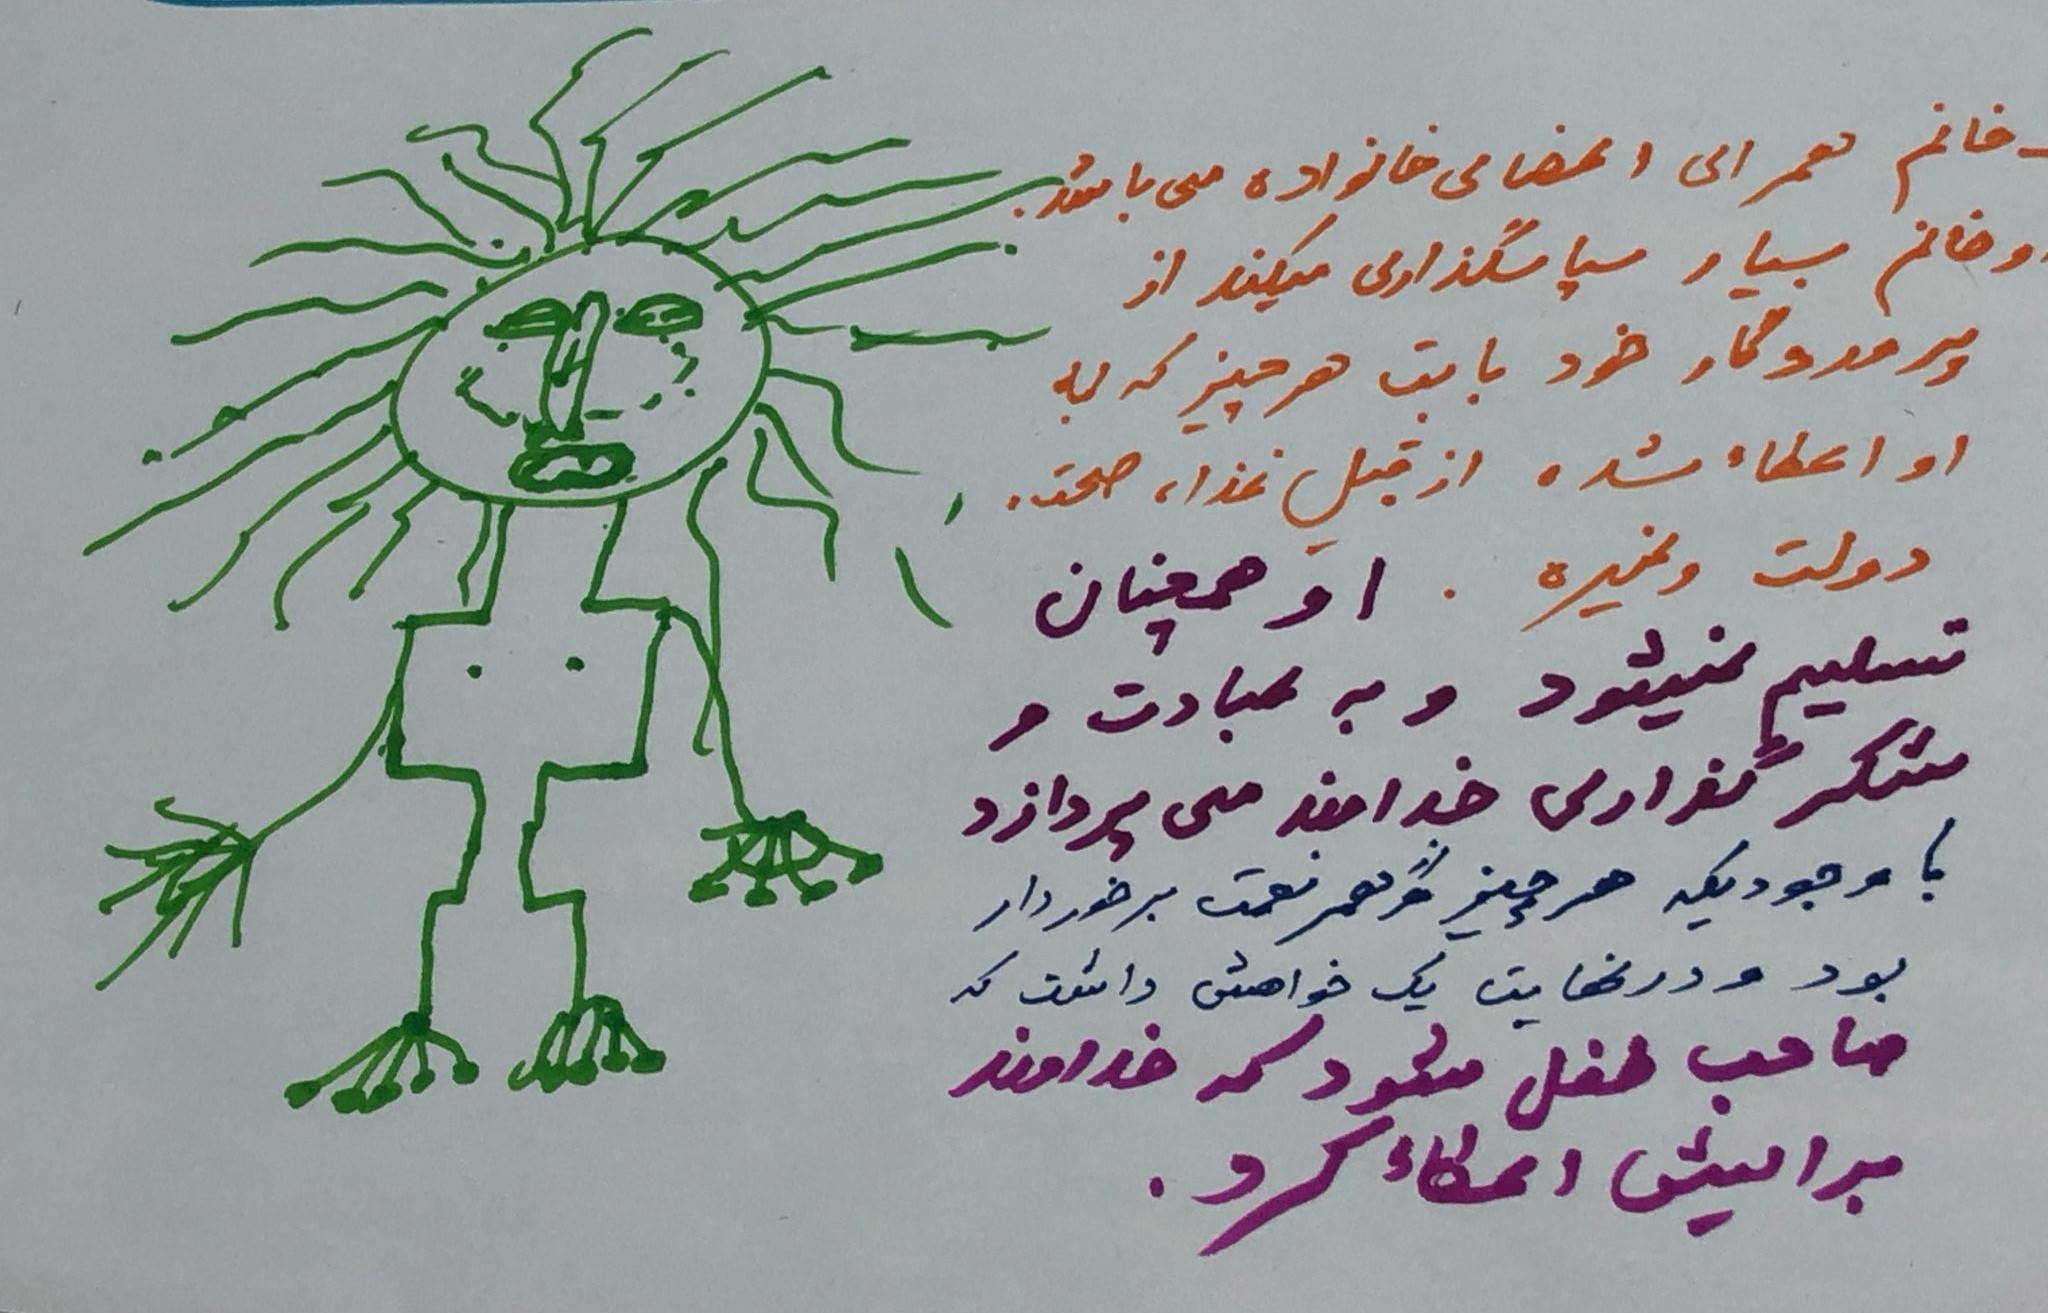 خانم همرای اعضای خانواده می باشد.
او خانم بسیار سپاسگذاری میکند از
پروردگار خود بابت هر چیز که به
او اعطاء شده از قبیل غذا، صحت،
دولت وغیره. او همچنان
تسلیم نمیشود و به عبادت و
شکر گذاری خداوند می پردازد
با وجودیکه هر چیز و هر نعمت برخوردار
بود و در نهایت یک خواهش داشت که
صاحب طفل میشود که خداوند
برایش اعطاء کرد.